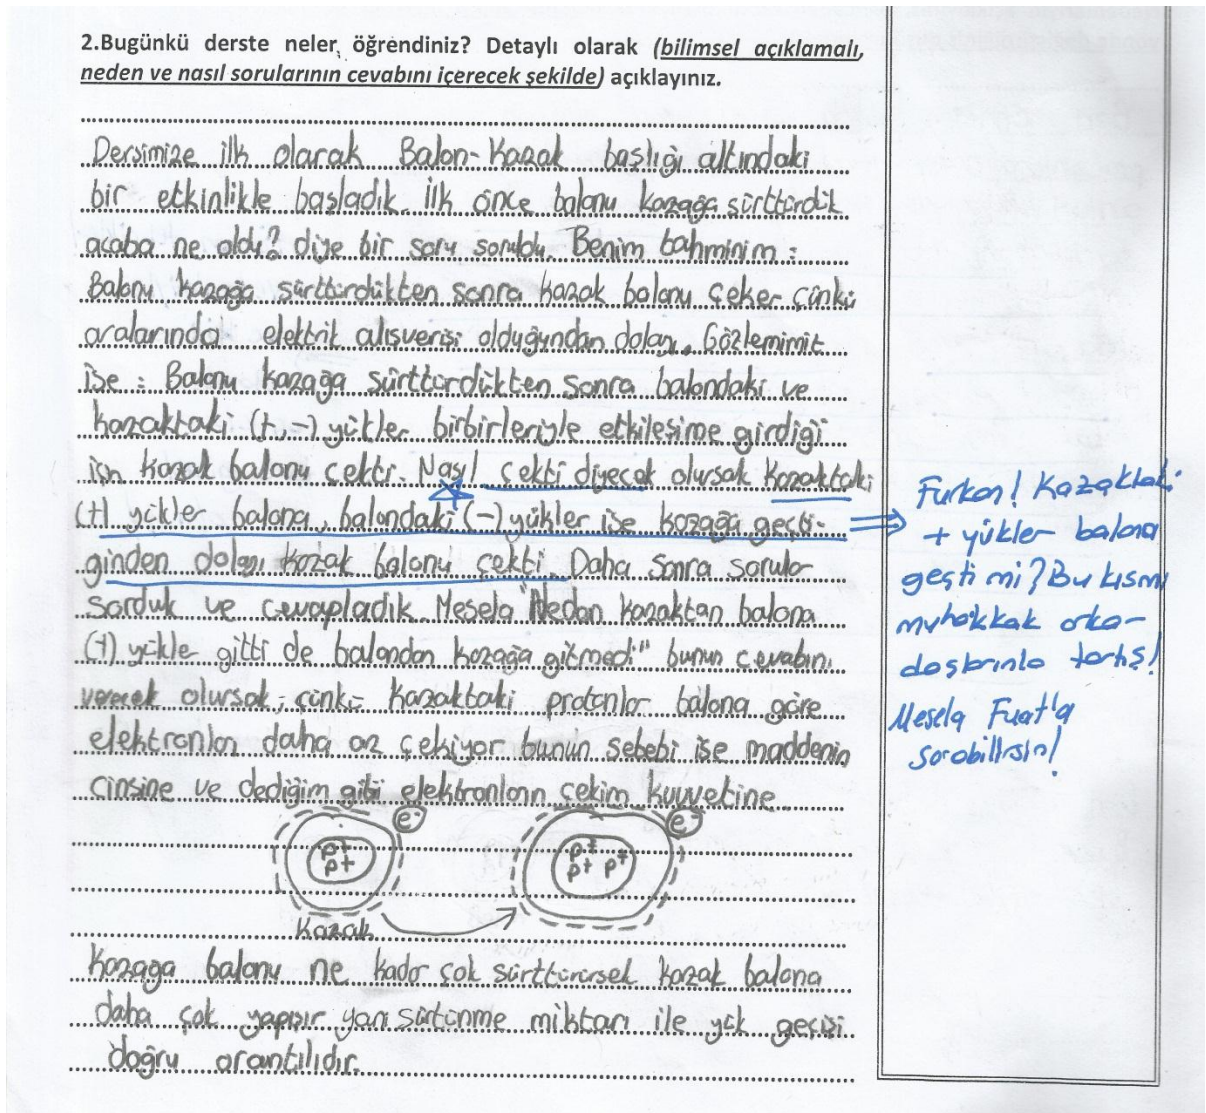 2.Bugünkü derste neler öğrendiniz? Detaylı olarak (bilimsel açıklamalı,
neden ve nasıl sorularının cevabını içerecek şekilde) açıklayınız.
Dersimize ilk olarak Balon-Kazak başlığı altındaki
bir etkinlikle başladık. İlk önce balonu kazağa sürttürdük
acaba ne oldu? diye bir soru soruldu. Benim tahminim :
Balonu kazağa sürttürdükten sonra kazak balonu çeker çünkü
aralarında elektrik alışverişi olduğundan dolayı. Gözlemimit
ise : Balonu kazağa sürttürdükten sonra balondaki ve
kazaktaki (+,-) yükler birbirleriyle etkileşime girdiği
için kazak balonu çekti. Nasıl çekti diyecek olursak Kazaktaki
(+) yükler balona, balondaki (-) yükler ise kazağa geçti-
ginden dolayı kazak balonu çekti. Daha sonra sorular
sorduk ve cevapladık. Mesela "Neden kazaktan balona
(+) yükle gitti de balondan kazağa gitmedi" bunun cevabını
verecek olursak; çünkü kazaktaki protonlar balona göre
elektronları daha az çekiyor bunun sebebi ise maddenin
cinsine ve dediğim gibi elektronların çekim kuvvetine
e⁻ e⁻
p+ p+
p+ p+ p+
Kazak
Kazağa balonu ne kadar çok sürttürürsek kazak balona
daha çok yapışır yani sürtünme miktarı ile yük geçişi
doğru orantılıdır.
Furkan! Kazaktaki
+ yükler balona
geçti mi? Bu kısmı
muhakkak arka-
daşlarınla tartış!
Mesela Fuat'a
sorabilirsin!